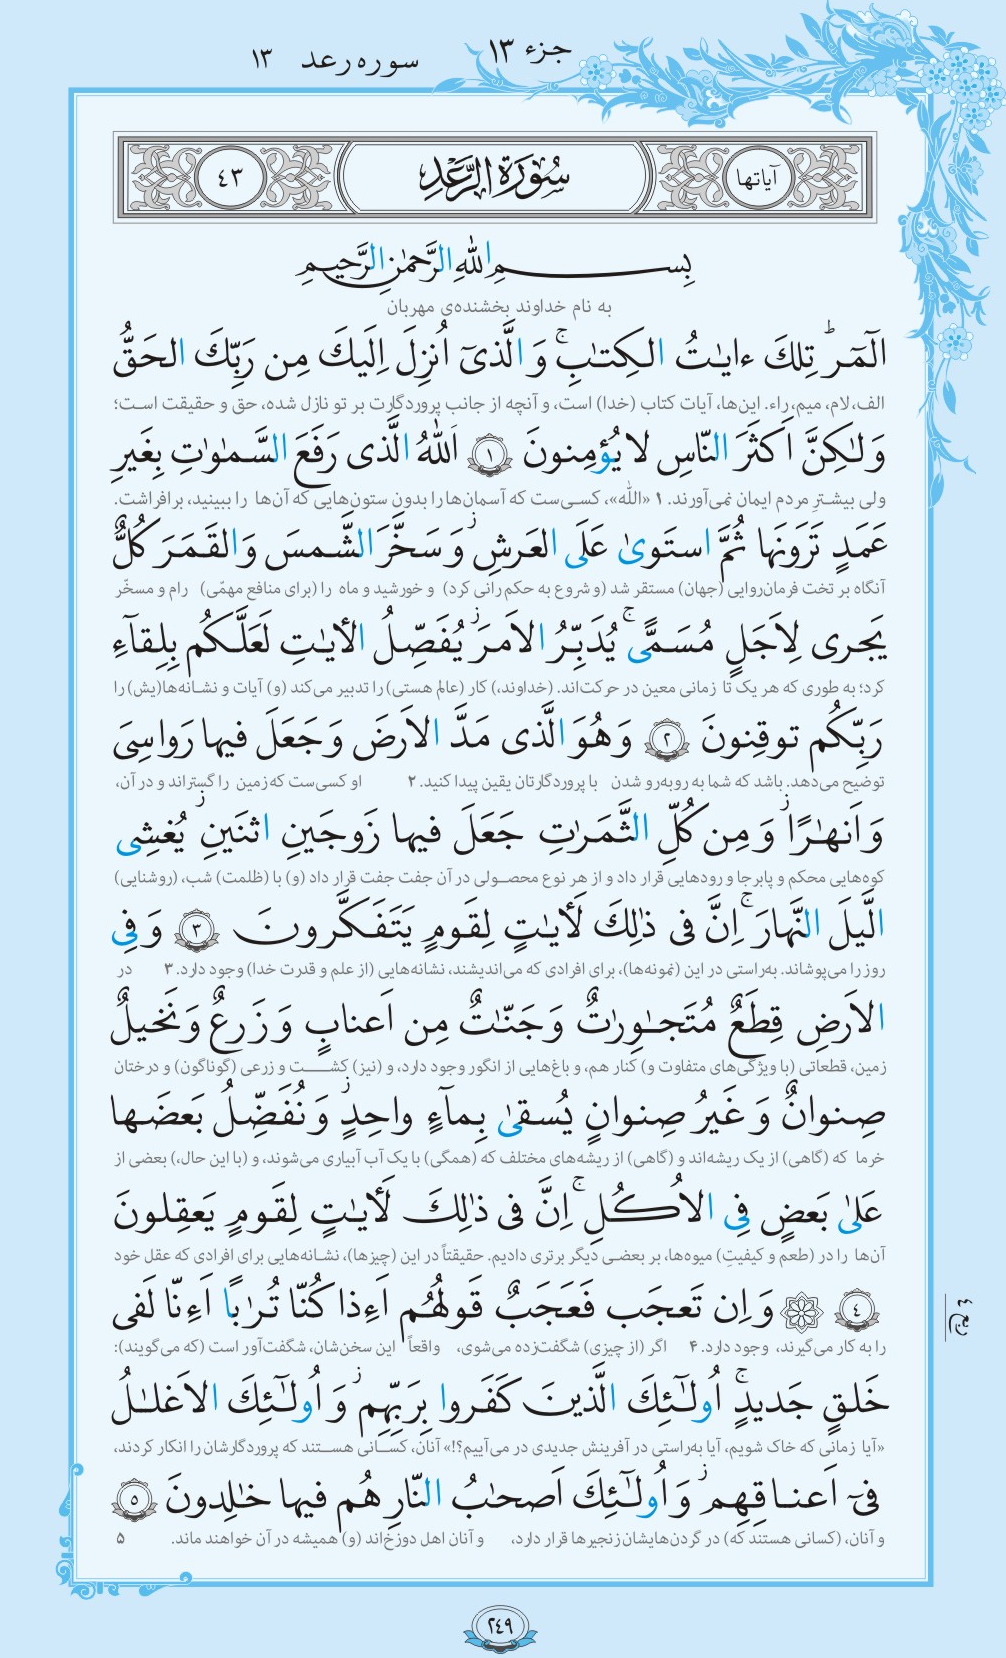 جزء ۱۳
سوره رعد ۱۳
آیاتها
سُورَةُ الرَّعْدِ
٤٣
بِسمِ اللّٰهِ الرَّحمٰنِ الرَّحیمِ
به نام خداوند بخشنده‌ی مهربان
الٓمٓرٰ ۚ تِلكَ ءایٰتُ الكِتٰبِ ۗ وَ الَّذیٓ اُنزِلَ اِلَیكَ مِن رَبِّكَ الحَقُّ
الف، لام، میم، راء. این‌ها، آیات کتاب (خدا) است، و آنچه از جانب پروردگارت بر تو نازل شده، حق و حقیقت است؛
وَ لٰكِنَّ اَكثَرَ النّاسِ لا یُؤمِنونَ ۱ اَللّٰهُ الَّذی رَفَعَ السَّمٰوٰتِ بِغَیرِ
ولی بیشترِ مردم ایمان نمی‌آورند. ۱ «الله»، کسی‌ست که آسمان‌ها را بدون ستون‌هایی که آن‌ها را ببینید، برافراشت.
عَمَدٍ تَرَونَها ثُمَّ استَویٰ عَلَی العَرشِ ز وَ سَخَّرَ الشَّمسَ وَ القَمَرَ كُلٌّ
آنگاه بر تخت فرمان‌روایی (جهان) مستقر شد (و شروع به حکم‌رانی کرد) و خورشید و ماه را (برای منافع مهمّی) رام و مسخّر
یَجری لِاَجَلٍ مُسَمًّی ج یُدَبِّرُ الاَمرَ ز یُفَصِّلُ الأیٰتِ لَعَلَّكُم بِلِقآءِ
کرد؛ به طوری که هر یک تا زمانی معین در حرکت‌اند. (خداوند،) کار (عالم هستی) را تدبیر می‌کند (و) آیات و نشانه‌ها(یش) را
رَبِّكُم توقِنونَ ۲ وَ هُوَ الَّذی مَدَّ الاَرضَ وَ جَعَلَ فیها رَواسِیَ
توضیح می‌دهد. باشد که شما به روبه‌رو شدن با پروردگارتان یقین پیدا کنید. ۲ او کسی‌ست که زمین را گستراند و در آن،
وَ اَنهٰرًا ز وَ مِن كُلِّ الثَّمَرٰتِ جَعَلَ فیها زَوجَینِ اثنَینِ ز یُغشِی
کوه‌هایی محکم و پابرجا و رودهایی قرار داد و از هر نوع محصولی در آن جفت جفت قرار داد (و) با (ظلمت) شب، (روشنایی)
الَّیلَ النَّهارَ ج اِنَّ فی ذٰلِكَ لَأیٰتٍ لِقَومٍ یَتَفَكَّرونَ ۳ وَ فِی
روز را می‌پوشاند. به‌راستی در این (نمونه‌ها)، برای افرادی که می‌اندیشند، نشانه‌هایی (از علم و قدرت خدا) وجود دارد. ۳ در
الاَرضِ قِطَعٌ مُتَجٰوِرٰتٌ وَ جَنّٰتٌ مِن اَعنابٍ وَ زَرعٌ وَ نَخیلٌ
زمین، قطعاتی (با ویژگی‌های متفاوت و) کنار هم، و باغ‌هایی از انگور وجود دارد، و (نیز) کشت و زرعی (گوناگون) و درختان
صِنوانٌ وَ غَیرُ صِنوانٍ یُسقیٰ بِمآءٍ واحِدٍ ز وَ نُفَضِّلُ بَعضَها
خرما که (گاهی) از یک ریشه‌اند و (گاهی) از ریشه‌های مختلف که (همگی) با یک آب آبیاری می‌شوند، و (با این حال،) بعضی از
عَلیٰ بَعضٍ فِی الاُكُلِ ج اِنَّ فی ذٰلِكَ لَأیٰتٍ لِقَومٍ یَعقِلونَ
آن‌ها را در (طعم و کیفیتِ) میوه‌ها، بر بعضی دیگر برتری دادیم. حقیقتاً در این (چیزها)، نشانه‌هایی برای افرادی که عقل خود
٤ وَ اِن تَعجَب فَعَجَبٌ قَولُهُم اَءِذا كُنّا تُرٰبًا اَءِنّا لَفی
ربع ٤
را به کار می‌گیرند، وجود دارد. ۴ اگر (از چیزی) شگفت‌زده می‌شوی، واقعاً این سخن‌شان، شگفت‌آور است (که می‌گویند):
خَلقٍ جَدیدٍ ج اُولٰٓئِكَ الَّذینَ كَفَروا بِرَبِّهِم ز وَ اُولٰٓئِكَ الاَغلٰلُ
«آیا زمانی که خاک شویم، آیا به‌راستی در آفرینش جدیدی در می‌آییم؟!» آنان، کسانی هستند که پروردگارشان را انکار کردند،
فیٓ اَعناقِهِم ز وَ اُولٰٓئِكَ اَصحٰبُ النّارِ هُم فیها خٰلِدونَ ۵
و آنان، (کسانی هستند که) در گردن‌هایشان زنجیرها قرار دارد، و آنان اهل دوزخ‌اند (و) همیشه در آن خواهند ماند. ۵
۲۴۹